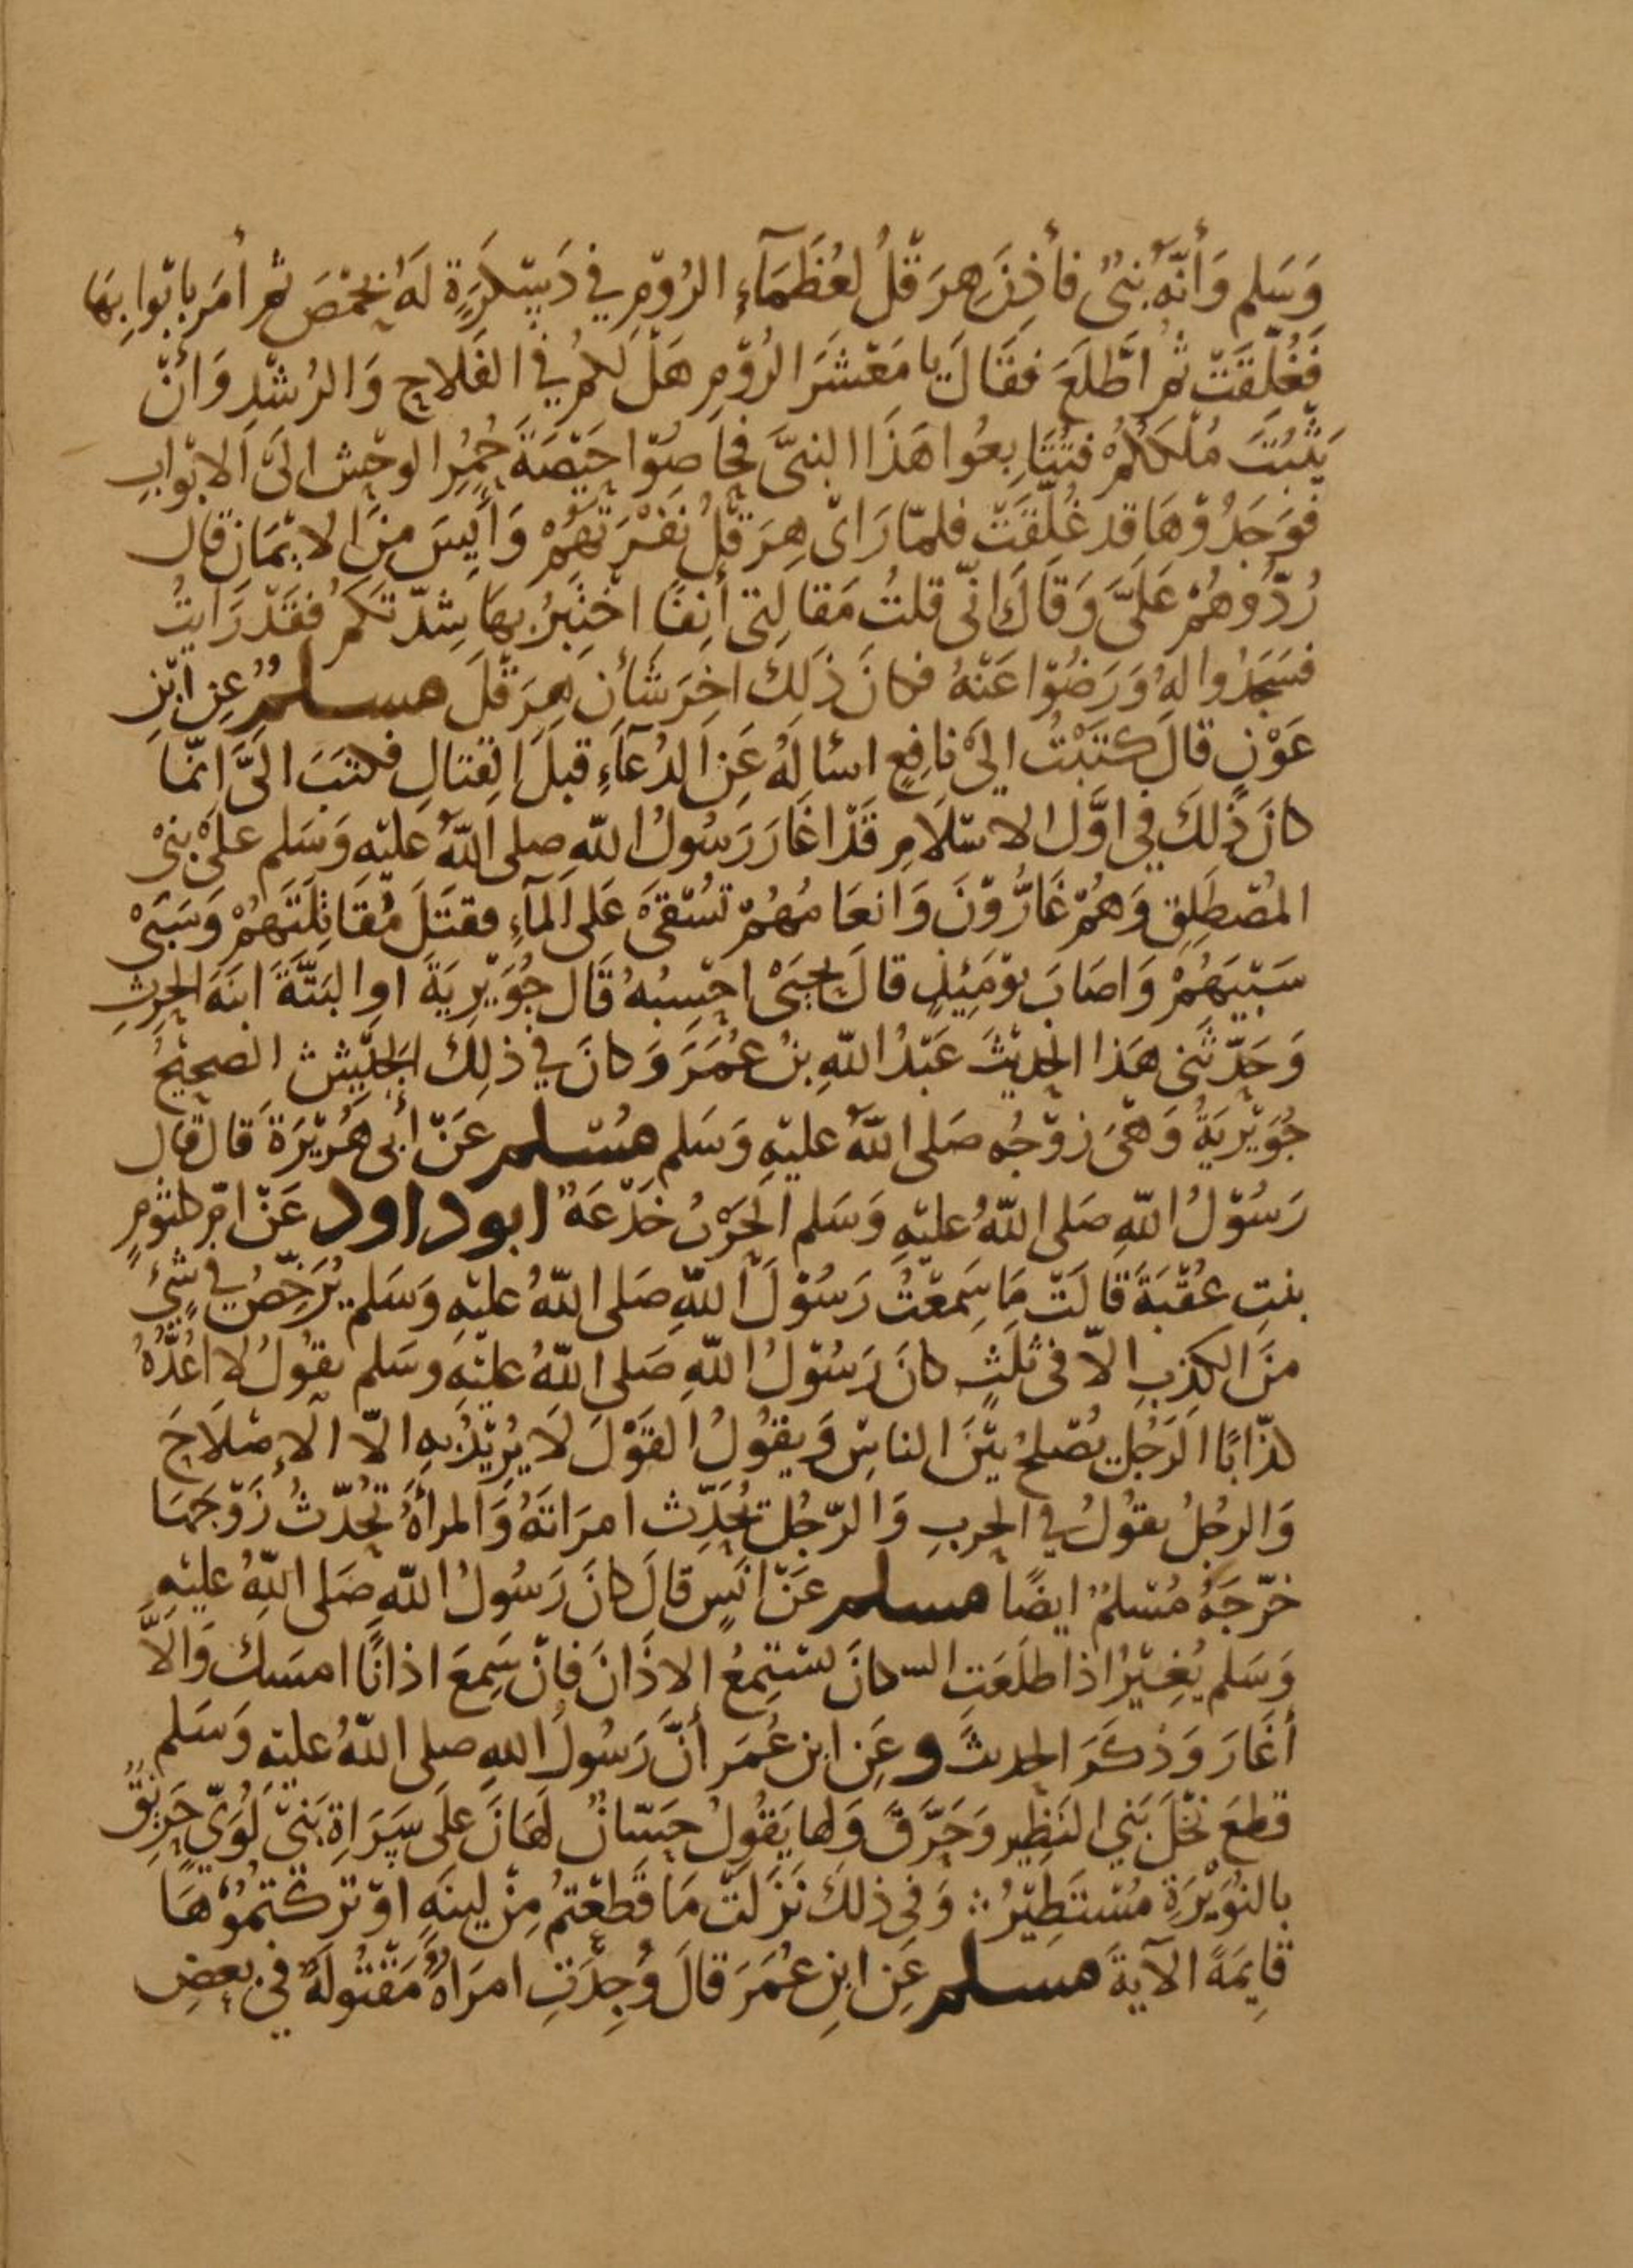 وَسَلم وَأنّهُ نبيٌ فأذِنَ هِرَقْلُ لعُظَمَآءِ الرُوْمِ في دَسْكَرَةٍ لَهُ بحِمْصَ ثم أمَر بابْوابِهَا
فَغُلِّقَتْ ثُم اطَّلعَ فقَالَ يا مَعْشَرَ الرُوْمِ هَلْ لَكُمْ في الفَلاحِ وَالرُشْدِ وَانْ
يَثْبُتَ مُلْكَكُمْ فتُبَايِعُوا هَذَا النبيَّ فحَاصُوْا حَيْصَةَ حُمُرِ الوحْشِ الىَ الابْوابِ
فوَجَدُوْهَا قد غُلِّقَتْ فلمّا رَاىْ هِرَقْلُ نَفْرَتَهُمْ وَأَيِسَ مِنَ الايْمَانِ قال
رُدُّوهُمْ عَلَىَّ وَقَالَ انّى قلتُ مَقالتِى أنِفًا اخْتَبِرُ بهَا شِدّتَكمْ فقَدْ رَايتُ
فسَجَدُوا لهُ وَرَضُوْا عَنْهُ فكانَ ذَلِكَ اخِرَ شَأنِ هِرَقْلَ مسلمٌ عِن ابْنِ
عَوْنٍ قالَ كتَبْتُ الى نافِعٍ اسْالهُ عَنِ الدُعَآءِ قبلَ القِتالِ فكتبَ الَىَّ انّمَا
كانَ ذلِكَ في اوَّل الاسْلَامِ قَدْ اغَارَ رَسُولُ اللّه صلى اللّهُ عليْهِ وَسَلم علىْ بَنىْ
المُصْطَلِقِ وَهُمْ غَارُّوْنَ وَانعَامُهُمْ تُسْقىَ عَلى المآءِ فقتَلَ مُقَاتِلَتَهُمْ وَسَبَىْ
سَبْيَهُمْ وَاصَابَ يوْمَئِذٍ قالَ يحيَىْ احْسِبُهُ قَال جُوَيْرِيَةَ اوِ البَتَّةَ ابنَهَ الحرِثِ
وَحَدّثنِى هَذا الحدِيْثَ عَبْدُ اللّهِ بنُ عُمَرَ وَكانَ في ذلِكَ الجَيْشِ الصحِيْحُ
جُوَيْرِيَةُ وَهْىَ زوْجُه صَلى اللّهُ عليْهِ وَسَلم مُسْلم عَنْ أبى هُرَيْرَةَ قال قال
رَسُوْلُ اللّهِ صَلى اللّهُ عليْهِ وَسَلم الحَرْبُ خَدْعَةٌ ابوداود عَنْ امّ كلثوْمٍ
بنتِ عُقْبَةَ قالَتْ مَا سَمِعْتُ رَسُوْلَ اللّهِ صَلى اللّهُ عليْهِ وَسَلم يُرَخّصُ في شَىْءٍ
منَ الكذِبِ الاّ فى ثلَثٍ كانَ رَسُوْلُ اللّهِ صَلى اللّهُ عليْهِ وسَلم يقوُلُ لا اعُدُّهُ
كذّابًا الرَجُل يُصْلحُ بيْنَ الناسِ وَيقوُلُ القَوْلَ لَا يُرِيْدُ بِهِ الاّ الإصْلَاحَ
وَالرجُلُ يقوُلُ في الحربِ وَالرّجُل يُحَدِّث امرَاتَهُ وَالمرأةُ تُحَدّثُ زَوْجَهَا
خرّجَهُ مُسْلمٌ ايضًا مسلم عَنْ انَسٍ قالَ كانَ رَسُولُ اللّهِ صَلى اللّهُ عليْهِ
وَسَلم يُغِيْرُ اذا طلَعَتِ كانَ يسْتمِعُ الاذَانَ فانْ سَمِعَ اذانًا امسَكَ وَالاَّ
أغَارَ وَذكَرَ الحدِيثَ وعَنِ ابن عُمَر أنَّ رَسُولُ اللهِ صلى اللّهُ عليْهِ وَسَلم
قطعَ نخْلَ بَني النَظِير وَحَرَّقَ وَلها يَقُولُ حَسّانٌ لَهَانَ عَلَى سَرَاةِ بَنىْ لُوَىّ حَرِيْقٌ
بالبُوَيْرَةِ مُسْتَطِيْرُ ؛ وَفى ذلكَ نزَلتْ مَا قَطعْتمُ مِنْ لِينَهٍ اوْ ترَكْتمُوْهَا
قايِمَةً الآيةَ مسلم عَنِ ابنِ عُمَرَ قالَ وُجِدَتِ امرَاةٌ مَقْتُولَةً فى بعضِ